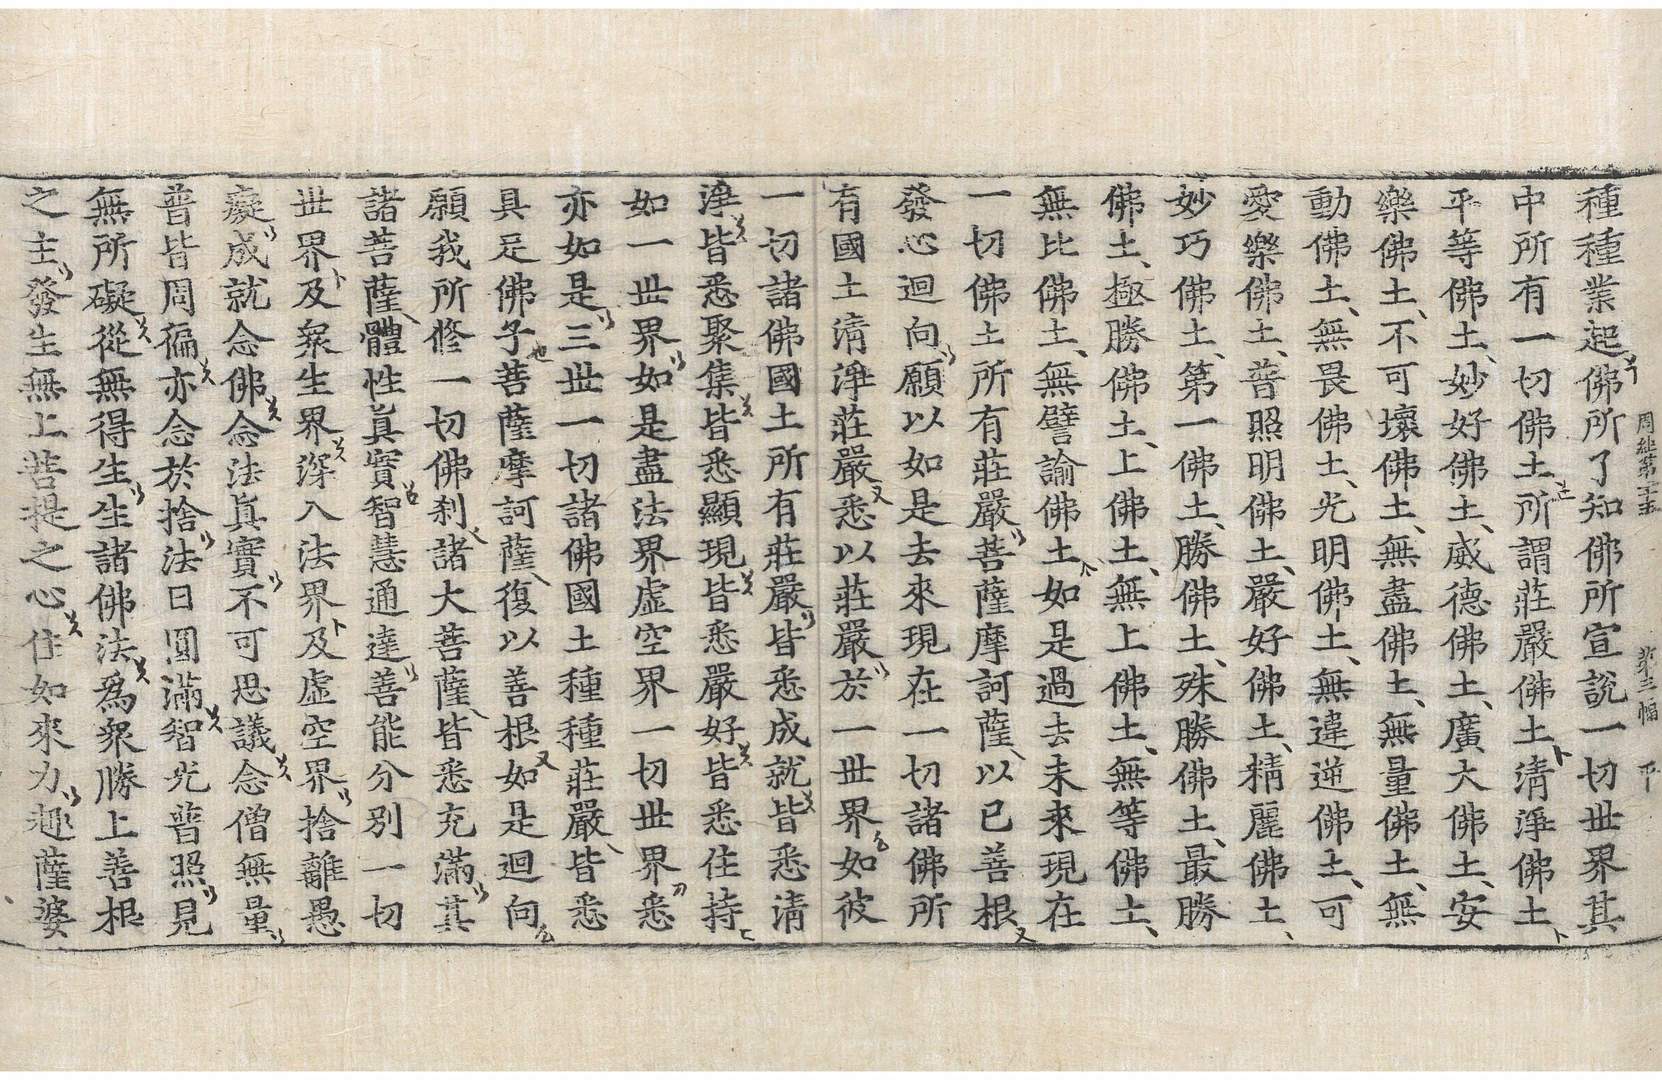 周經第二十二　第三幅　平
種種業起佛所了知佛所宣說一切世界其
中所有一切佛土所謂莊嚴佛土清淨佛土
平等佛土妙好佛土威德佛土廣大佛土安
樂佛土不可壞佛土無盡佛土無量佛土無
動佛土無畏佛土光明佛土無違逆佛土可
愛樂佛土普照明佛土嚴好佛土精麗佛土
妙巧佛土第一佛土勝佛土殊勝佛土最勝
佛土極勝佛土上佛土無上佛土無等佛土
無比佛土無譬諭佛土如是過去未來現在
一切佛土所有莊嚴菩薩摩訶薩以已善根
發心迴向願以如是去來現在一切諸佛所
有國土清淨莊嚴悉以莊嚴於一世界如彼
一切諸佛國土所有莊嚴皆悉成就皆悉清
淨皆悉聚集皆悉顯現皆悉嚴好皆悉住持
如一世界如是盡法界虛空界一切世界悉
亦如是三世一切諸佛國土種種莊嚴皆悉
具足佛子菩薩摩訶薩復以善根如是迴向
願我所修一切佛刹諸大菩薩皆悉充滿其
諸菩薩體性眞實智慧通達善能分別一切
世界及衆生界深入法界及虛空界捨離愚
癡成就念佛念法眞實不可思議念僧無量
普皆周徧亦念於捨法日圓滿智光普照見
無所礙從無得生生諸佛法爲衆勝上善根
之主發生無上菩提之心住如來力趣薩婆